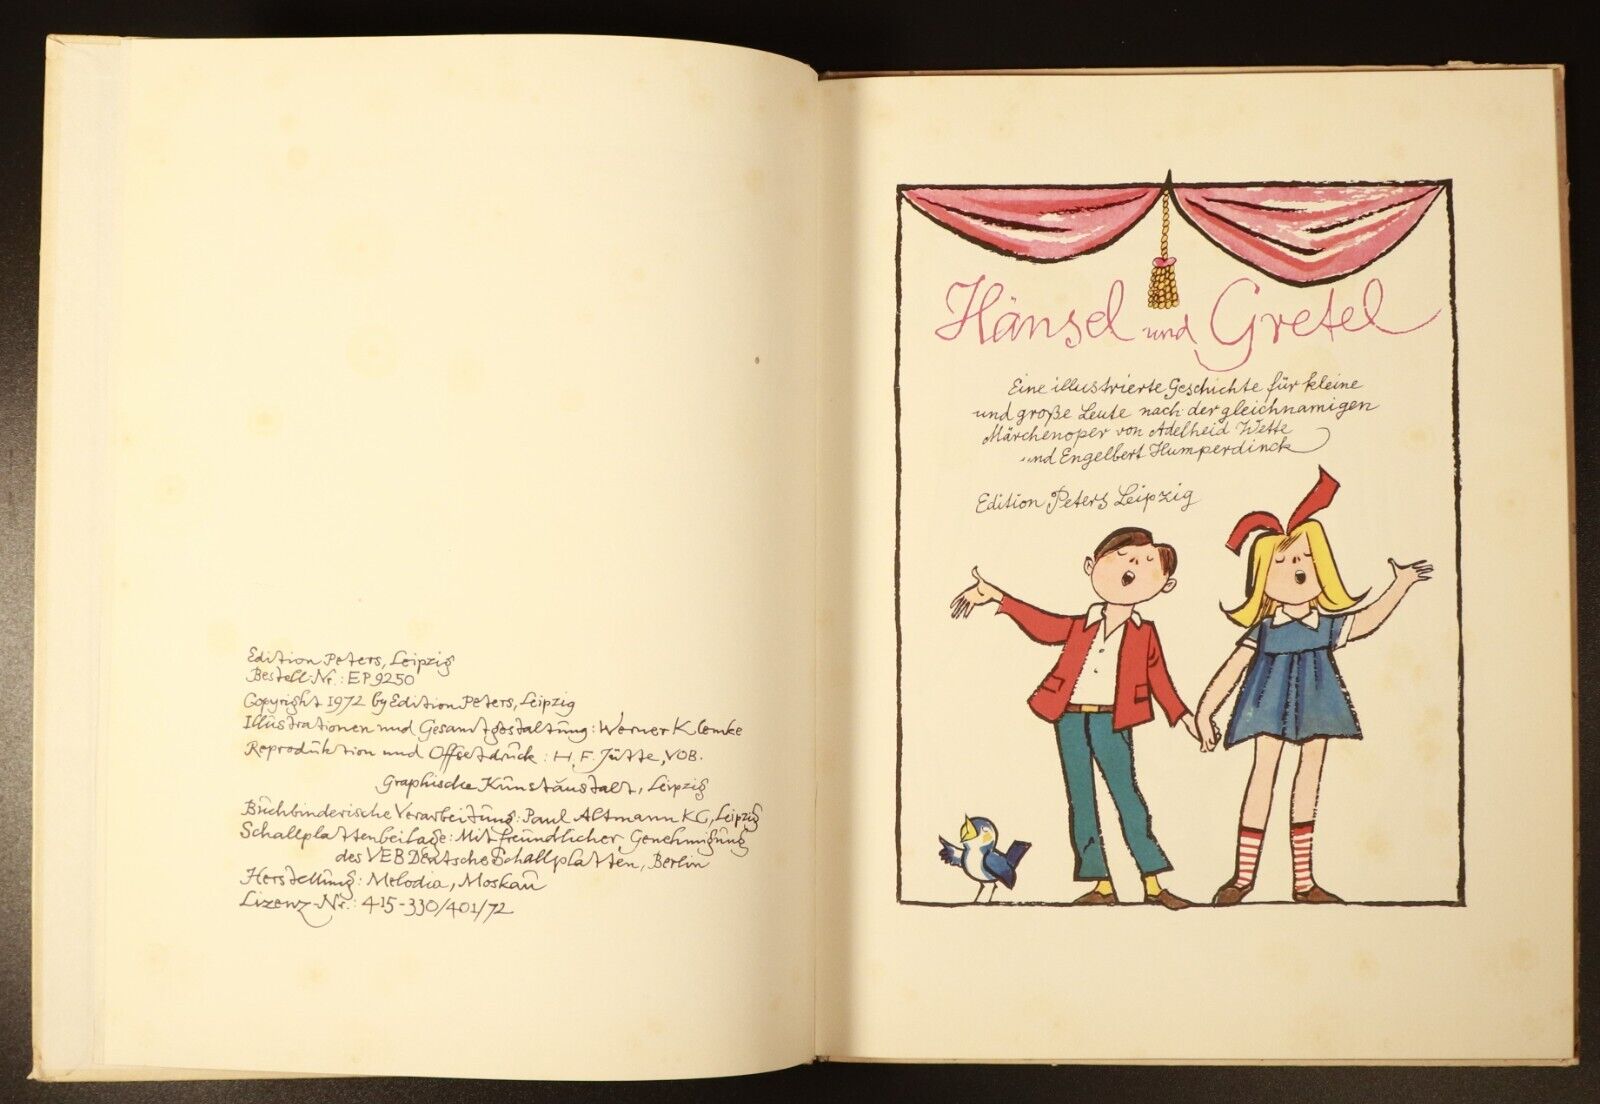 Edition Peters, Leipzig
Bestell-Nr.: EP 9250
Copyright 1972 by Edition Peters, Leipzig
Illustrationen und Gesamtgestaltung: Werner Klemke
Reproduktion und Offsetdruck: H. F. Jütte, VOB.
Graphische Kunstanstalt, Leipzig
Buchbinderische Verarbeitung: Paul Altmann KG, Leipzig
Schallplattenbeilage: Mit freundlicher Genehmigung
des VEB Deutsche Schallplatten, Berlin
Herstellung: Melodia, Moskau
Lizenz-Nr.: 415-330/401/72
Hänsel und Gretel
Eine illustrierte Geschichte für kleine
und große Leute nach der gleichnamigen
Märchenoper von Adelheid Wette
und Engelbert Humperdinck
Edition Peters Leipzig